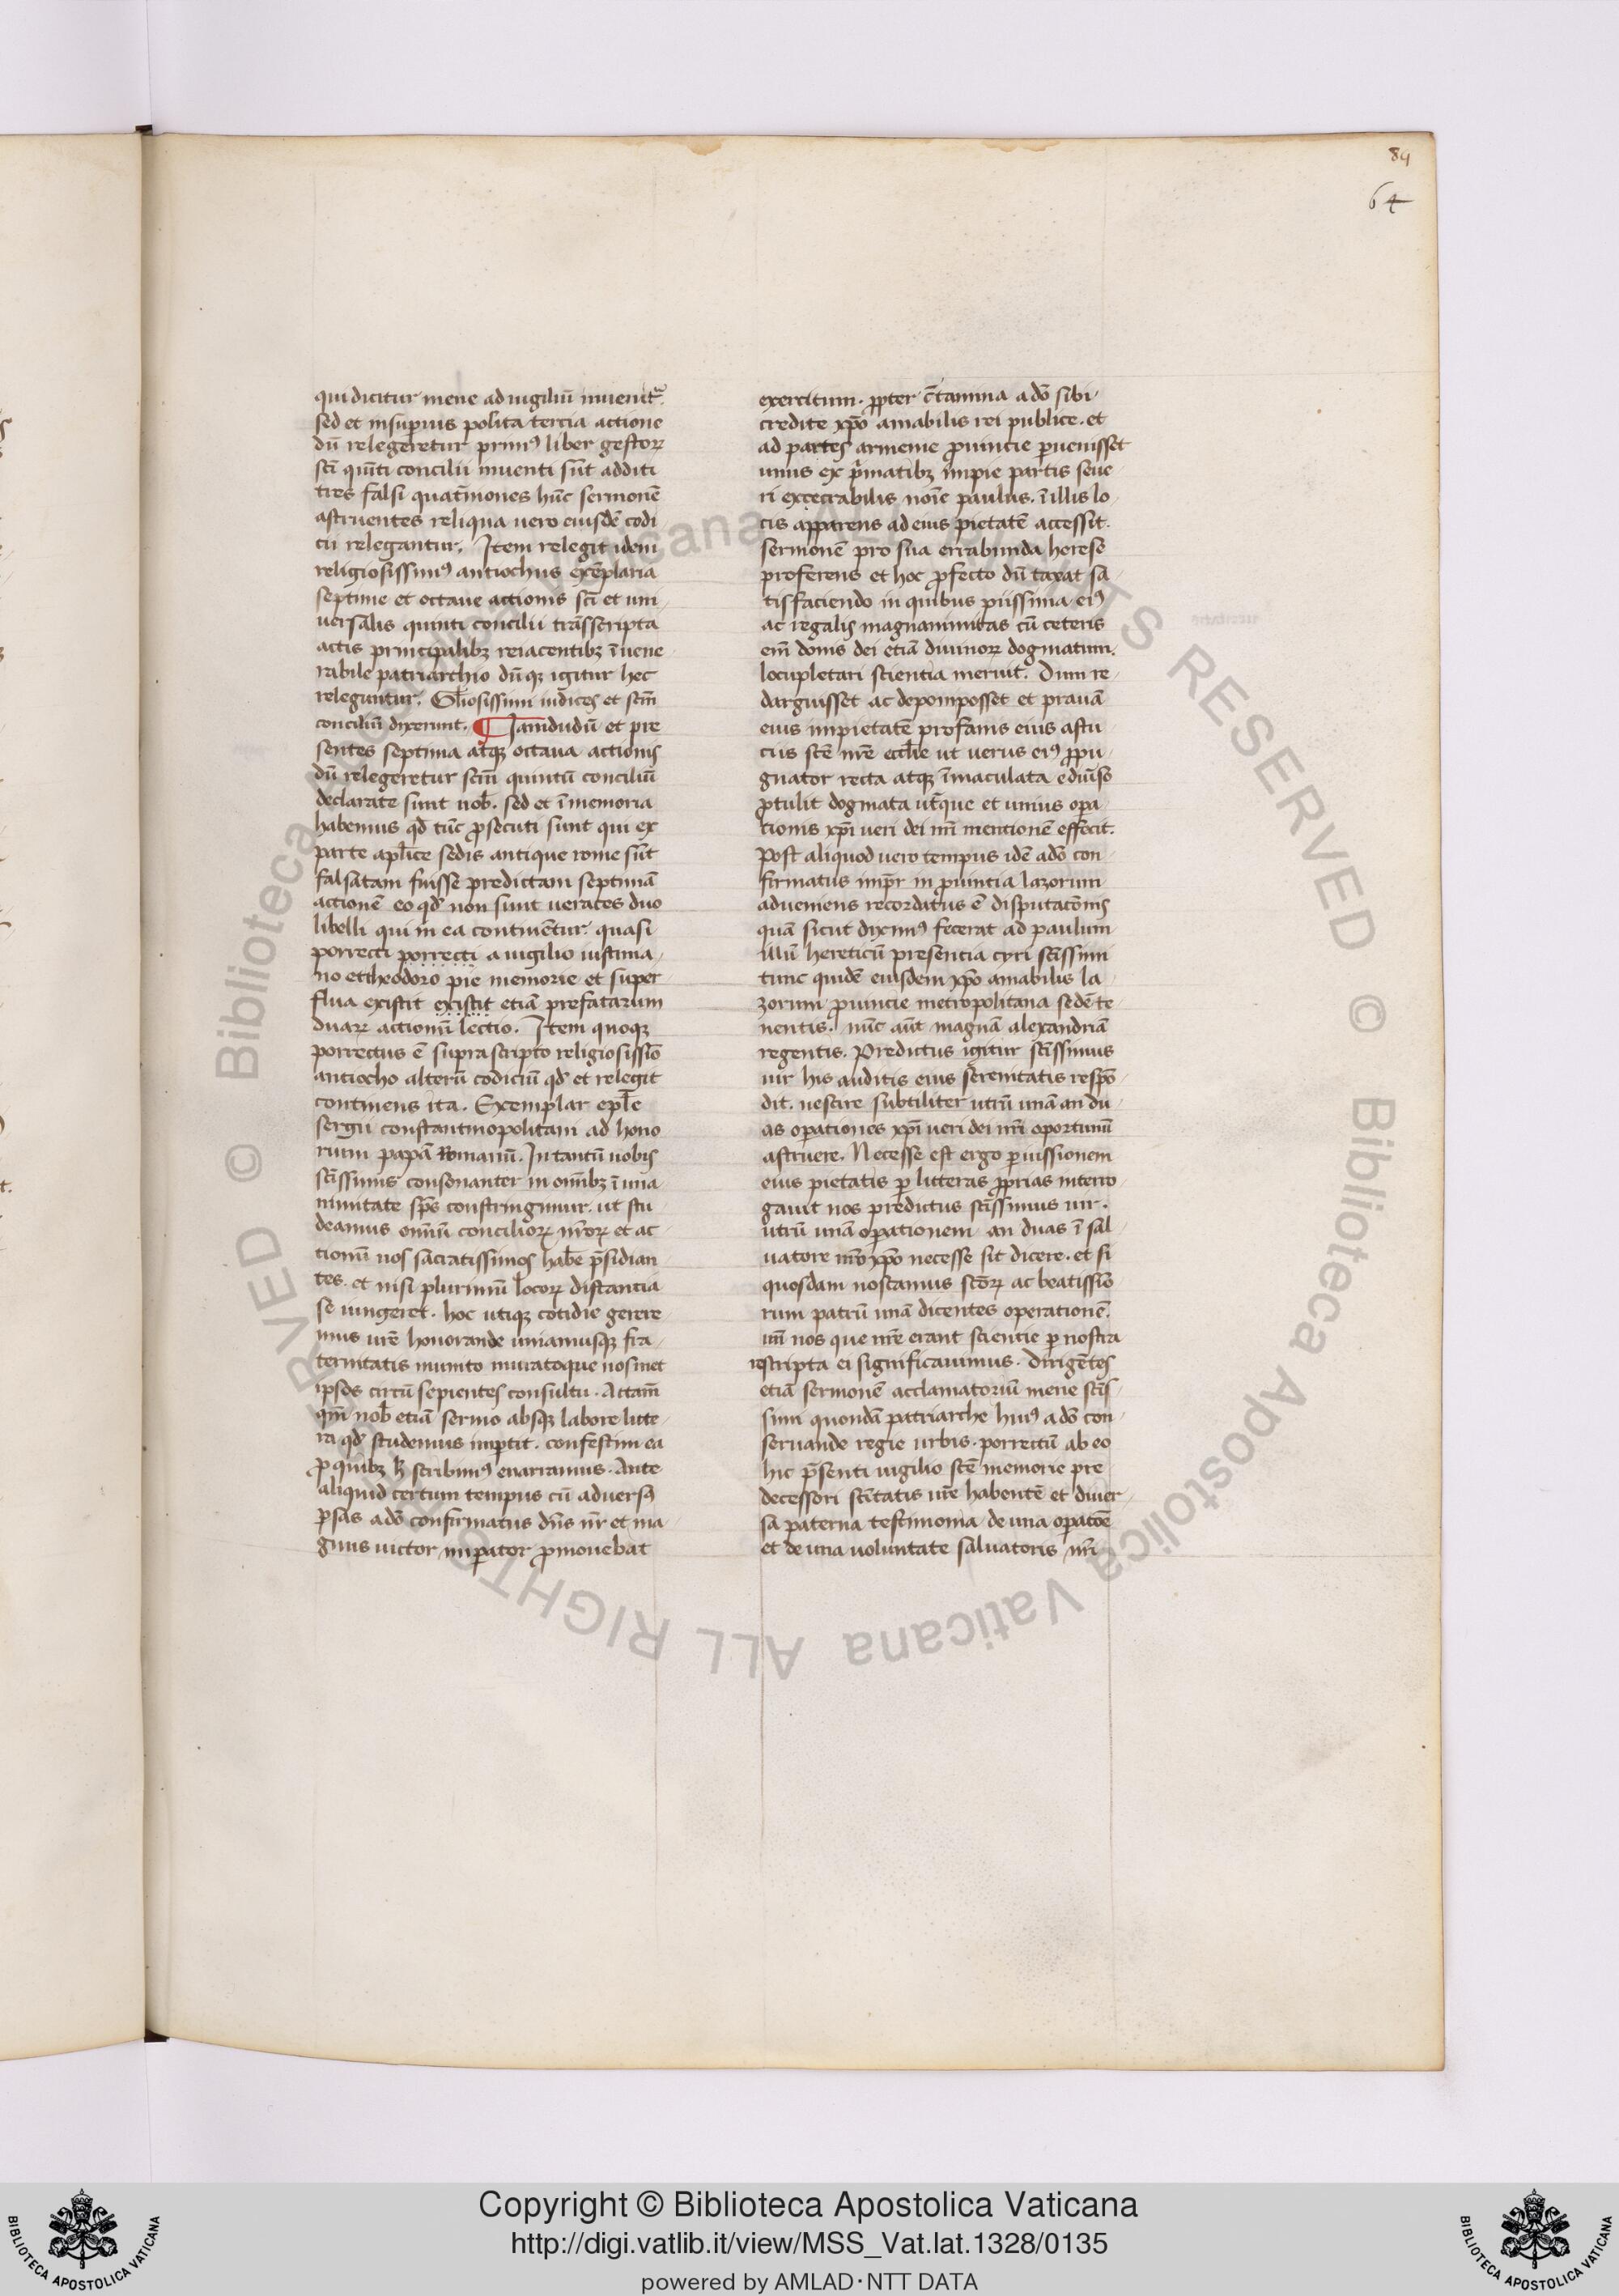 89
64
qui dicitur mene ad uigiliū inuenit᷑.
sed et insuprius posita tercia actione
dū relegeretur prim⁹ liber gestorꝝ
sci̅ qui̅ti concilii inuenti su̅t additi
tres falsi quat̃niones hu̅c sermone̅
astruentes reliqua uero eiusde̅ codi
cii relegantur. Item relegit idem
religiosissim⁹ antiochus exe̅plaria
septime et octaue actionis sci̅ et uni
uersalis quinti concilii tra̅sscripta
actis principalibꝫ reiacentibꝫ i̅ uene
rabile patriarchio du̅qꝫ igitur hec
releguntur. Gl̅iosissimi iudices et scm̅
conciliu̅ dixerunt. ¶ Iamdudu̅ et pre
sentes septima atqꝫ octaua actionis
du̅ relegeretur scm̅ quintu̅ conciliu̅
declarate sunt nob̅. sed et i̅ memoria
habemus qd̅ tu̅c ꝓsecuti sunt qui ex
parte apl̅ice sedis antique rome su̅t
falsatam fuisse predictam septima̅
actione̅ eo qd̅ non sunt uerates duo
libelli qui in ea contine̅tur quasi
porrecti porrecti a uigilio iustinia
no et theodoro pie memorie et super
flua existit existit etia̅ prefatarum
duarꝝ actionu̅ lectio. Item quoqꝫ
porrectus e̅ suprascripto religiosissi̅o
antiocho alteru̅ codiciu̅ qd̅ et relegit
continens ita. Exemplar epl̅e
sergii constantinopolitani ad hono
rium papa̅ Romanu̅. In tantu̅ uobis
sci̅ssimis consonanter in om̅ibꝫ i̅ una
nimitate sp̅s constringimur. ut stu
deamus omniu̅ conciliorꝝ nr̅orꝝ et ac
tionu̅ uos sacratissimos habe̅ p̅sidian
tes. et nisi plurimu̅ locorꝝ distantia
se iungeret. hoc utiqꝫ cotidie gerere
mus ure̅ honorande uniamusqꝫ fra
ternitatis munito muratoque nosmet
ipsos circu̅ sepientes consultu. Attam̅
qm̅ nob̅ etia̅ sermo absqꝫ labore litte
ra qd̅ studemus imꝑtit. confestim ea
ꝓ quibꝫ h̅ scribim⁹ enarramus. Ante
aliquid certum tempus cu̅ aduers⁹
ꝑsas a do̅ confirmatus dn̅s nr̅ et ma
gnus uictor imꝑator ꝓmouebat
exercitum. ꝓpter c̅tamina a do̅ sibi
credite xp̅o amabilis rei publice. et
ad partes armenie ꝓuincie ꝑuenisset
unus ex p̅matibꝫ impie partis seue
ri execrabilis noi̅e paulus. i̅ illis lo
cis apparens ad eius pietate̅ accessit.
sermone̅ pro sua errabunda herese
proferens et hoc ꝓfecto du̅ taxat sa
tisfaciendo in quibus piissima ei⁹
ac regalis magnanimitas cu̅ ceteris
em̅ donis dei etia̅ diuinorꝝ dogmatum.
locupletari scientia meruit. Dum re
darguisset ac depomposset et praua̅
eius impietate̅ profanis eius astu
ciis sce̅ nre̅ eccl̅ie ut uerus ei⁹ ꝓpu
gnator recta atqꝫ i̅maculata e diu̅so
ꝓtulit dogmata ut̅que et unius oꝑa
tionis xp̅i ueri dei nr̅i mentione̅ effecit.
Post aliquod uero tempus ide̅ a do̅ con
firmatus impr̅ in ꝓuintia lazorum
adueniens recordatus e̅ disputaco̅nis
qua̅ sicut dixim⁹ fecerat ad paulum
illu̅ hereticu̅ presentia cyri sci̅ssimi
tunc quide̅ eiusdem xp̅o amabilis la
zorum ꝓuincie metropolitana sede̅ te
nentis. nu̅c au̅t magna̅ alexandria̅
regentis. Predictus igitur sci̅ssimus
uir his auditis eius serenitatis respo̅
dit. nescire subtiliter utru̅ una̅ an du
as oꝑationes xp̅i ueri dei nr̅i oportunu̅
astruere. Necesse est ergo ꝑ uissionem
eius pietatis ꝑ litteras ꝓprias interro
gauit nos predictus sci̅ssimus uir.
utru̅ una̅ oꝑationem an duas i̅ sal
uatore nr̅o xp̅o necesse sit dicere. et si
quosdam noscamus sco̅rꝝ ac beatissi̅o
rum patru̅ una̅ dicentes operatione̅.
un̅ nos que nre̅ erant scientie ꝑ nostra
rescripta ei significauimus. dirige̅tes
etia̅ sermone̅ acclamatoriu̅ mene sci̅s
simi quonda̅ patriarche hui⁹ a do̅ con
seruande regie urbis. porrectu̅ ab eo
hic p̅senti uigilio sce̅ memorie pre
decessori sci̅tatis ure̅ habente̅ et diuer
sa paterna testimonia de una oꝑaco̅e
et de una uoluntate saluatoris nr̅i
Copyright © Biblioteca Apostolica Vaticana
http://digi.vatlib.it/view/MSS_Vat.lat.1328/0135
powered by AMLAD·NTT DATA
BIBLIOTECA APOSTOLICA VATICANA
BIBLIOTECA APOSTOLICA VATICANA
© Biblioteca Apostolica Vaticana ALL RIGHTS RESERVED © Biblioteca Apostolica Vaticana ALL RIGHTS RESERVED